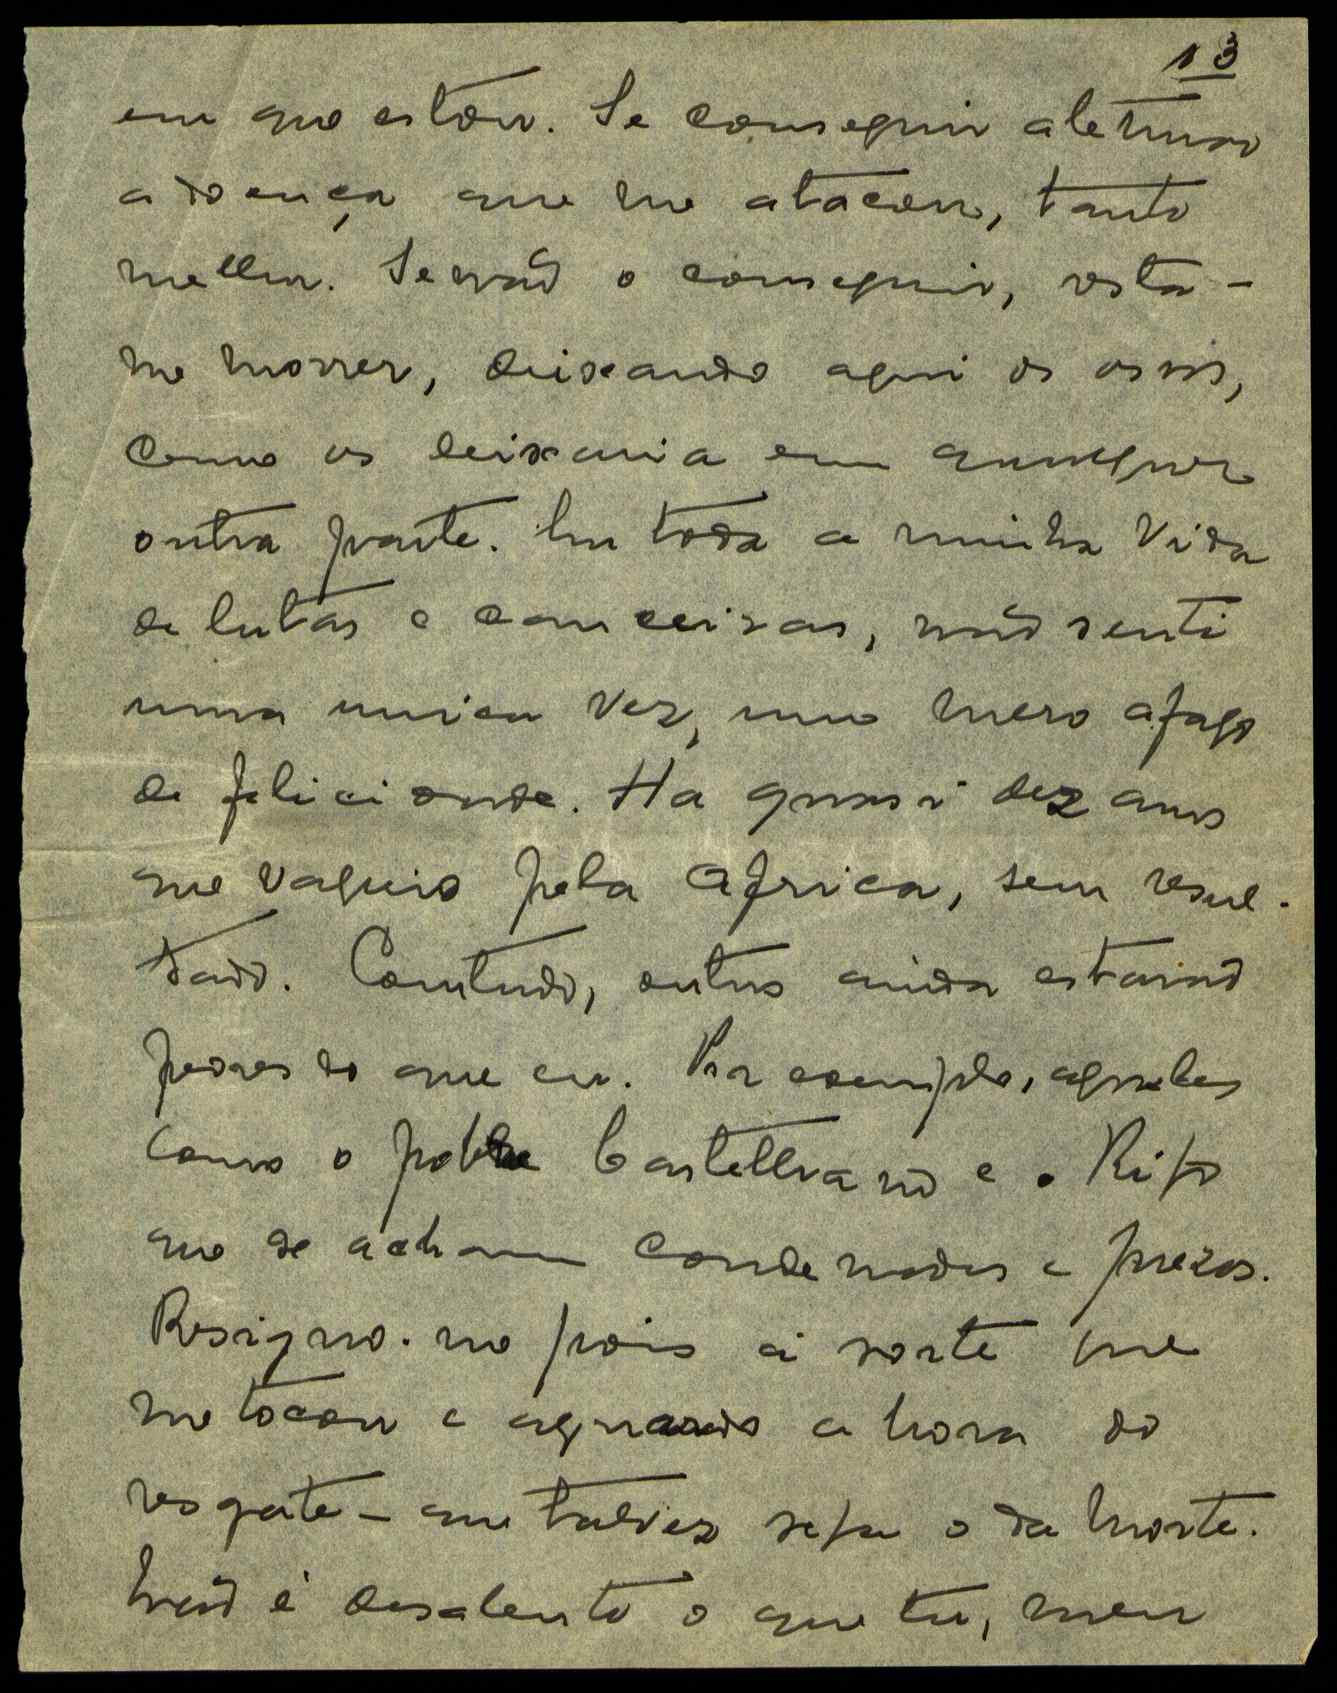 13
em que estou. Se conseguir
a doença que me atacou, tanto
melhor. Se não o conseguir, resta-
me morrer, deixando aqui os ossos,
como os deixaria em qualquer
outra parte. Em toda a minha vida
de lutas e canceiras, não senti
uma unica vez, um mero afago
de felicidade. Ha quasi dez anos
que vagueio pela Africa, sem resul-
tado. Comtudo, outros ainda estarão
peores do que eu. Por exemplo, aqueles
como o pobre Castelhano e o
que se acham condenados e prezos.
Resigno-me pois á sorte que
me tocou e aguardo a hora do
resgate – que talvez seja o da morte.
Não é desalento o que tu, meu